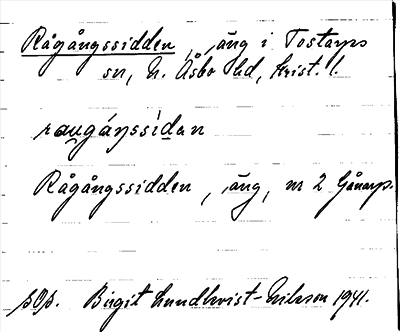 Rågångssidden, äng i Tostarps
sn, N. Åsbo hd, Krist. l.
raugáŋssídan
Rågångssidden, äng, nr 2 Gånarp.
pOp. Birgit Lundkvist-Nilsson 1941.